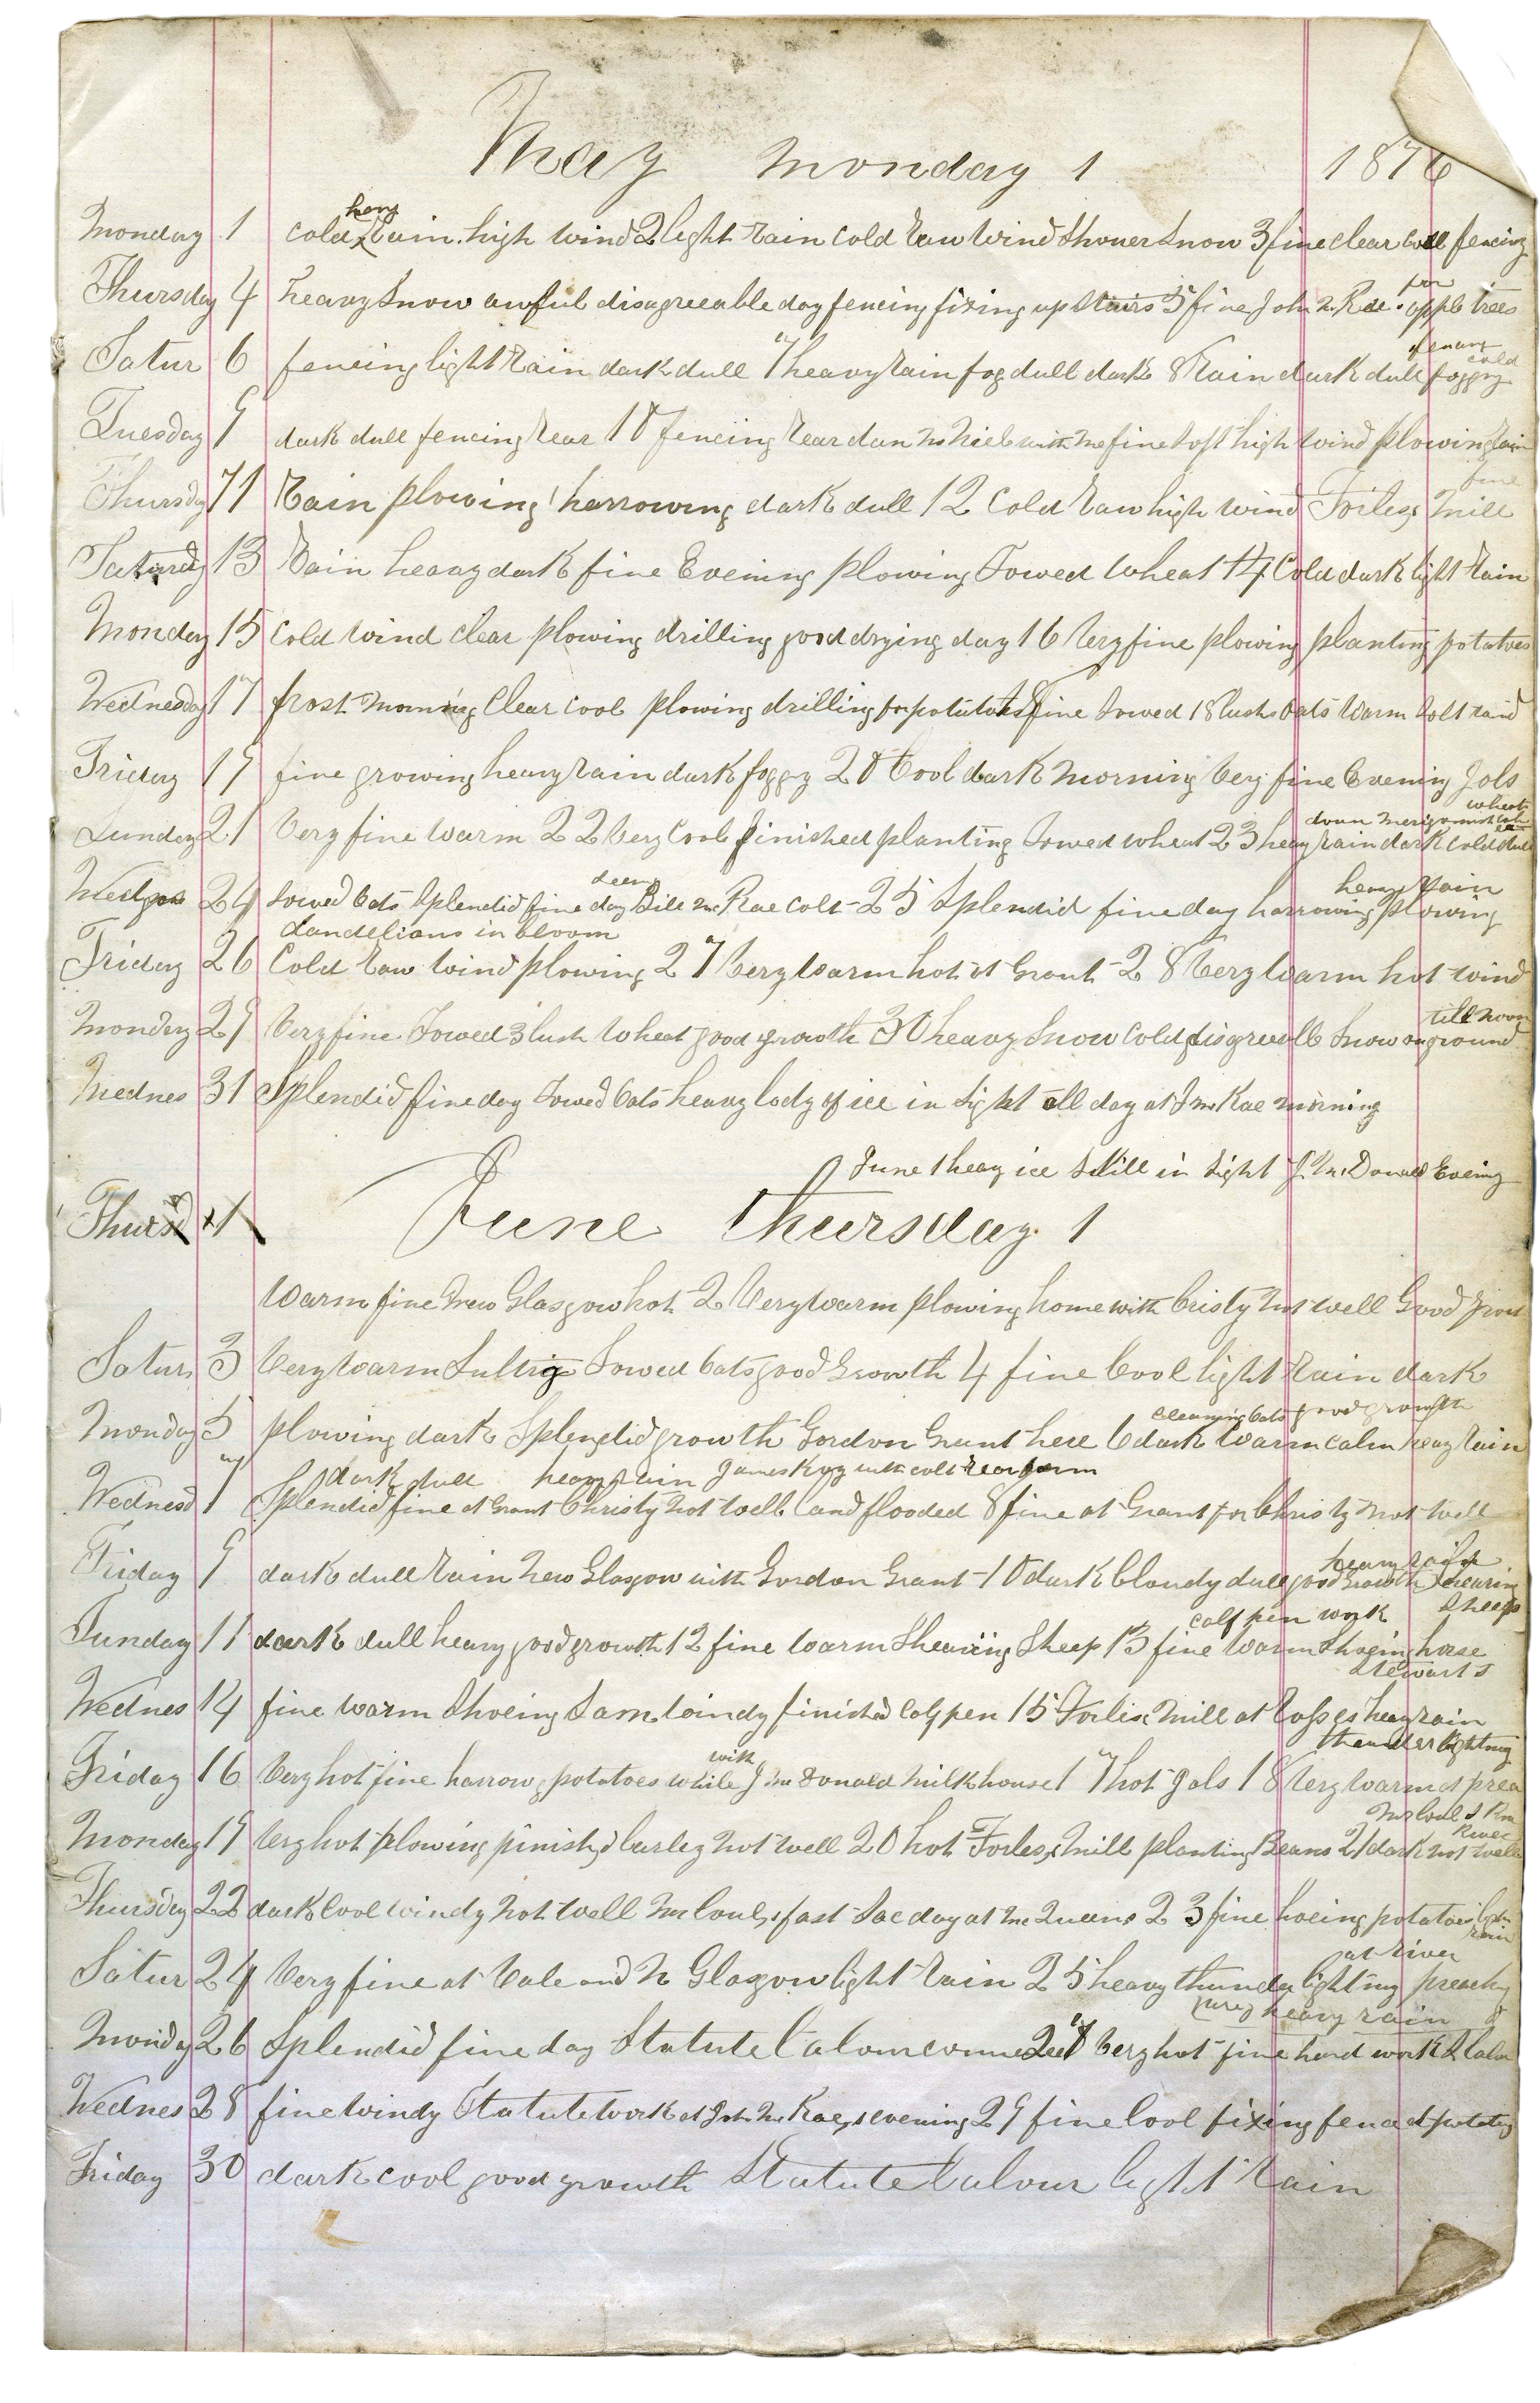 May Monday 1 1876
heavy
Monday 1 Cold Rain high Wind 2 light Rain Cold Raw Wind Shower Snow 3 fine clear cool fencing
for
Thursday 4 heavy Snow awful disagreeable day fencing fixing up Stairs 5 fine John McRae apple trees
heavy
cold
Satur 6 fencing light Rain dark dull 7 heavy rain fog dull dark 8 Rain dark dull foggy
Tuesday 9 dark dull fencing Rear 10 fencing Rear dan McNiel with me fine Soft high Wind plowing Rain
fine
Thursday 11 Rain plowing harrowing dark dull 12 Cold Raw high wind Mill
Saturday 13 Rain heavy dark fine Evening plowing Sowed Wheat 14 Cold dark light Rain
Monday 15 Cold Wind clear plowing drilling good drying day 16 Very fine plowing planting potatoes
Wednesday 17 frost morning Clear Cool plowing drilling for potatoes 18 fine Sowed 18 bushs Oats Warm Soft rain
Friday 19 fine growing heavy rain dark foggy 20 Cool dark Morning Very fine Evening Jols
wheat
Sunday 21 Very fine Warm 22 Very Cool finished planting Sowed wheat 23 heavy rain dark Cold dull
heavy Rain
Wednes 24 Sowed Oats Splendid fine day Bill McRae Colt 25 Splendid fine day harrowing plowing
dandelians in bloom
Friday 26 Cold Raw Wind plowing 27 Very Warm hot at Grant 28 Very Warm hot wind
till noon
Monday 29 Very fine Sowed 3 bush Wheat good growth 30 heavy Snow Cold disgreealb Snow on ground
Wednes 31 Splendid fine day Sowed Oats heavy body of ice in Sight all day at J McRae morning
June 1 heavy ice Still in Sight J. McDonald Evening
Thurs 1 June Thursday 1
Warm fine New Glasgow hot 2 Very Warm plowing home with Cristy not well Good grow
Satur 3 Very Warm Sultry Sowed Oats good Growth 4 fine Cool light Rain dark
cleaning Oats good growth
Monday 5 plowing dark Splendid growth Gordon Grant here 6 dark Warm calm heavy rain
dark dull heavy rain James Roy with colt rear farm
Wednesd 7 Splendid fine at Grant Christy not well land flooded 8 fine at Grant for Christy not well
heavy rain
Friday 9 dark dull Rain New Glasgow with Gordon Grant 10 dark Cloudy dull good Growth Shearing
calf pen work Sheep
Sunday 11 dark dull heavy good growth 12 fine Warm Shearing Sheep 13 fine Warm Shoeing horse
Stewarts
Wednes 14 fine Warm Shoeing Sam Windy finished Calf pen 15 Mill at heavy rain
thunder lightning
with
Friday 16 Very hot fine harrow potatoes while J McDonald Milk house 17 hot Jols 18 Very Warm at prea
River
Monday 19 Very hot plowing finished barley not well 20 hot Mill planting Beans 21 dark not well
Thursday 22 dark Cool Windy not well fast Sac day at McQueens 23 fine hoeing potatoes
rain
at river
Satur 24 Very fine at Vale and N Glasgow light Rain 25 heavy thunder lightning preachg
heavy rain
Monday 26 Splendid fine day Statute Labour 27 Very hot fine hard work S labor
Wednes 28 fine Windy Statute Work at John McRaes evening 29 fine Cool fixing fence at potatoes
Friday 30 dark cool good growth Statute Labour light Rain